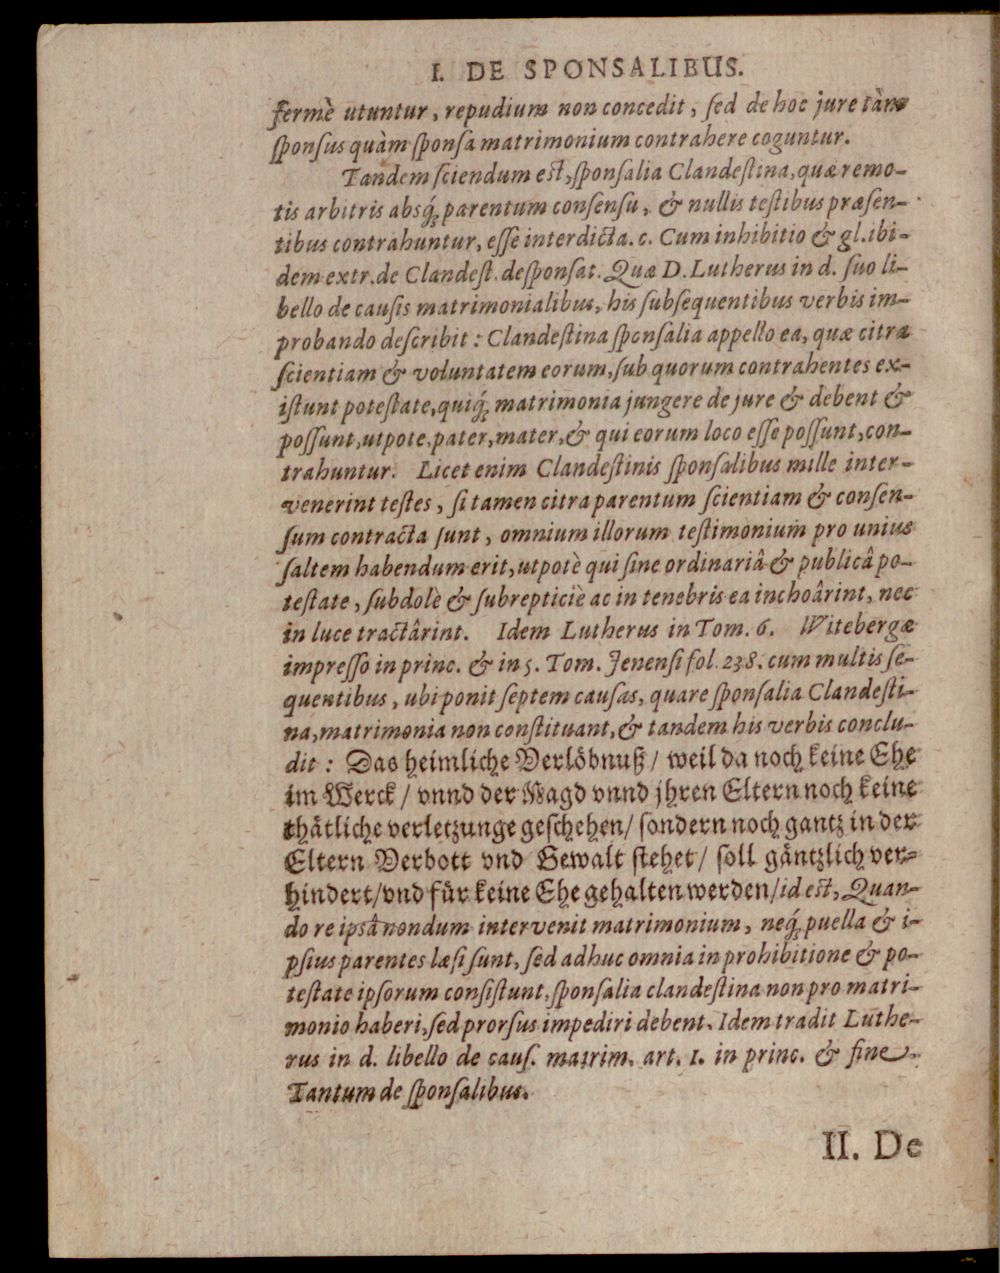 I. DE SPONSALIBUS.
fermè utuntur, repudium non concedit, sed de hoc jure tàm
sponsus quàm sponsa matrimonium contrahere coguntur.
Tandem sciendum est, sponsalia Clandestina, quæ remo-
tis arbitris absq́; parentum consensu, & nullis testibus præsen-
tibus contrahuntur, esse interdicta. c. Cum inhibitio & gl. ibi-
dem extr. de Clandest. desponsat. Quæ D. Lutherus in d. suo li-
bello de causis matrimonialibus, his subsequentibus verbis im-
probando describit: Clandestina sponsalia appello ea, quæ citra
scientiam & voluntatem eorum, sub quorum contrahentes ex-
istunt potestate, quiq́; matrimonia jungere de jure & debent &
possunt, utpote, pater, mater, & qui eorum loco esse possunt, con-
trahuntur. Licet enim Clandestinis sponsalibus mille inter-
venerint testes, si tamen citra parentum scientiam & consen-
sum contracta sunt, omnium illorum testimonium pro unius
saltem habendum erit, utpotè qui sine ordinariâ & publicâ po-
testate, subdolè & subrepticiè ac in tenebris ea inchoârint, nec
in luce tractârint. Idem Lutherus in Tom. 6. Witebergæ
impresso in princ. & in 5. Tom. Jenensi fol. 238. cum multis se-
quentibus, ubi ponit septem causas, quare sponsalia Clandesti-
na, matrimonia non constituant, & tandem his verbis conclu-
dit: Das heimliche Verlöbnuß / weil da noch keine Ehe
im Werck / vnnd der Magd vnnd jhren Eltern noch keine
thätliche verletzunge geschehen / sondern noch gantz in der
Eltern Verbott vnd Gewalt stehet / soll gäntzlich ver-
hindert / vnd für keine Ehe gehalten werden / id est, Quan-
do re ipsâ nondum intervenit matrimonium, neq́; puella & i-
psius parentes læsi sunt, sed adhuc omnia in prohibitione & po-
testate ipsorum consistunt, sponsalia clandestina non pro matri-
monio haberi, sed prorsus impediri debent. Idem tradit Luthe-
rus in d. libello de caus. matrim. art. 1. in princ. & fine.
Tantum de sponsalibus.
II. De